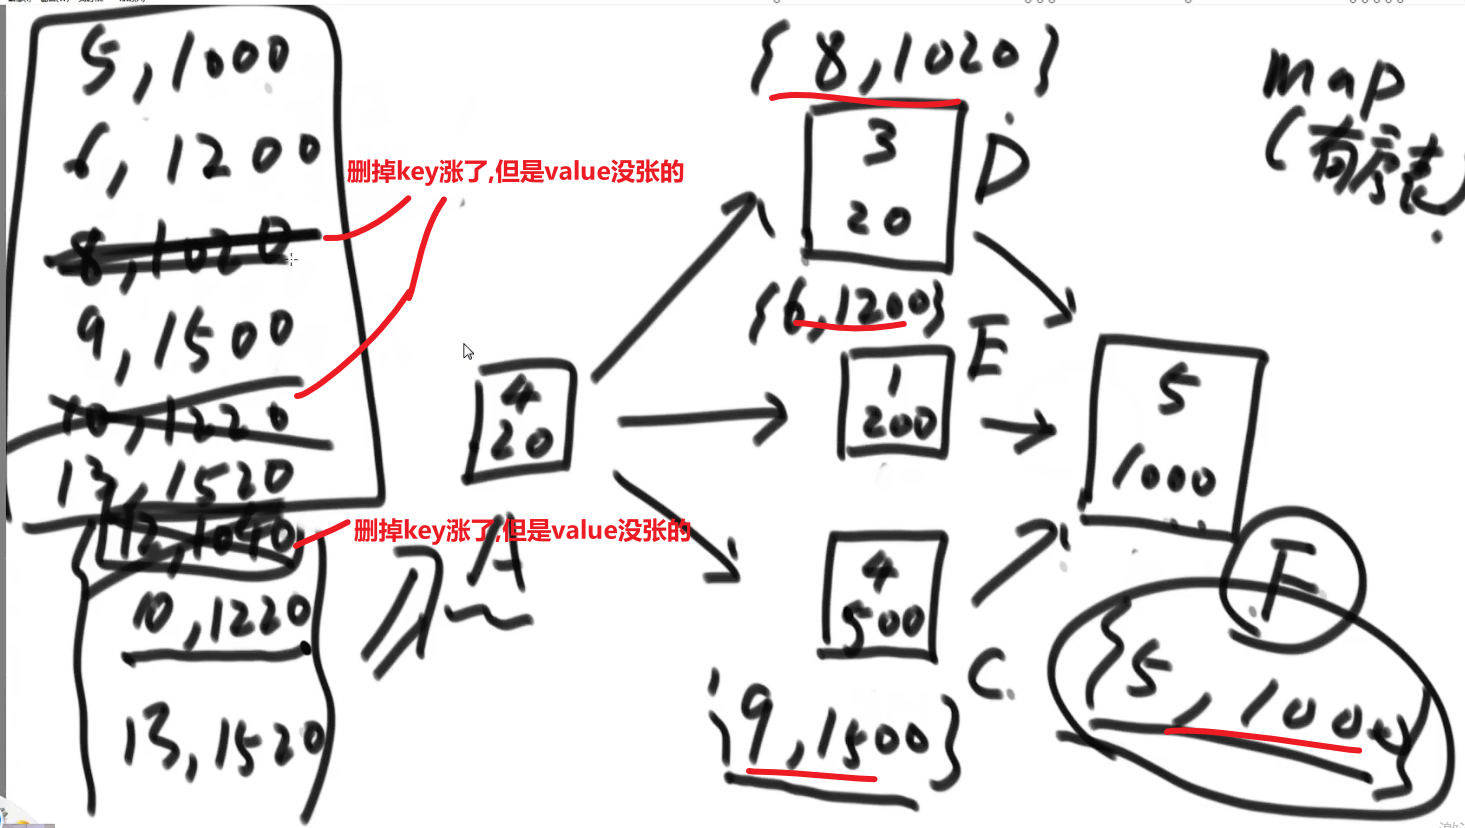 5,1000
6,1200
8,1020
9,1500
10,1220
13,1520
12,1040
10,1220
13,1520
删掉key涨了,但是value没张的
删掉key涨了,但是value没张的
4
20
A
{8,1020}
3
20
D
{6,1200}
1
200
E
4
500
C
{9,1500}
5
1000
F
{5,1000}
map
(有序表)